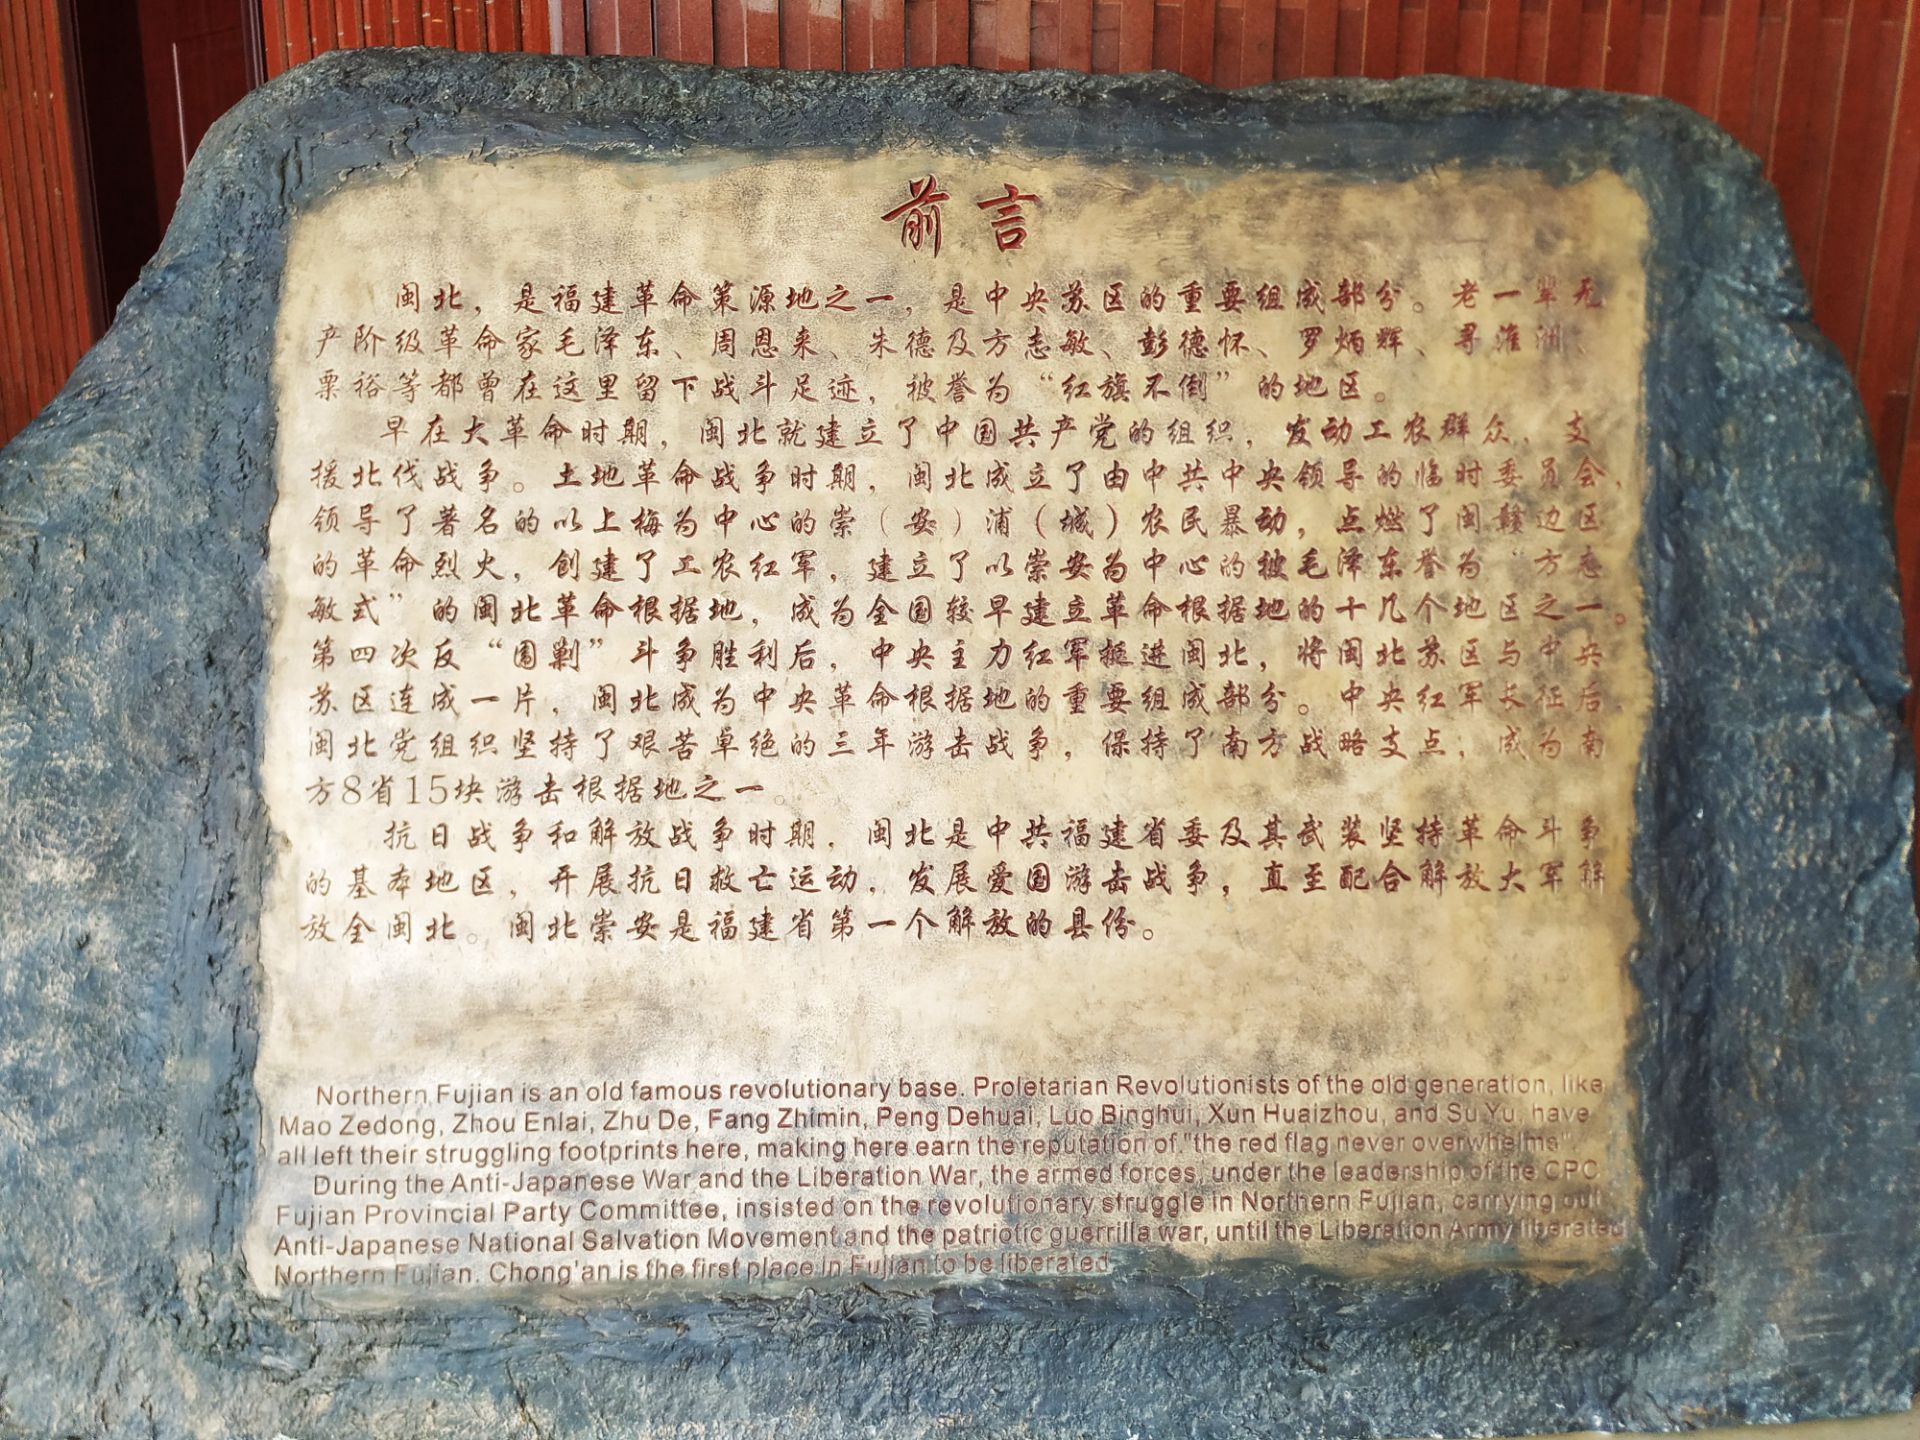 前言
闽北，是福建革命策源地之一，是中央苏区的重要组成部分。老一辈无
产阶级革命家毛泽东、周恩来、朱德及方志敏、彭德怀、罗炳辉、寻淮洲、
粟裕等都曾在这里留下战斗足迹，被誉为“红旗不倒”的地区。
早在大革命时期，闽北就建立了中国共产党的组织，发动工农群众，支
援北伐战争。土地革命战争时期，闽北成立了由中共中央领导的临时委员会，
领导了著名的以上梅为中心的崇（安）浦（城）农民暴动，点燃了闽赣边区
的革命烈火，创建了工农红军，建立了以崇安为中心的被毛泽东誉为“方志
敏式”的闽北革命根据地，成为全国较早建立革命根据地的十几个地区之一。
第四次反“围剿”斗争胜利后，中央主力红军挺进闽北，将闽北苏区与中央
苏区连成一片，闽北成为中央革命根据地的重要组成部分。中央红军长征后，
闽北党组织坚持了艰苦卓绝的三年游击战争，保持了南方战略支点，成为南
方8省15块游击根据地之一。
抗日战争和解放战争时期，闽北是中共福建省委及其武装坚持革命斗争
的基本地区，开展抗日救亡运动，发展爱国游击战争，直至配合解放大军解
放全闽北。闽北崇安是福建省第一个解放的县份。
Northern Fujian is an old famous revolutionary base. Proletarian Revolutionists of the old generation, like
Mao Zedong, Zhou Enlai, Zhu De, Fang Zhimin, Peng Dehuai, Luo Binghui, Xun Huaizhou, and Su Yu, have
all left their struggling footprints here, making here earn the reputation of "the red flag never overwhelms"
During the Anti-Japanese War and the Liberation War, the armed forces, under the leadership of the CPC
Fujian Provincial Party Committee, insisted on the revolutionary struggle in Northern Fujian, carrying out
Anti-Japanese National Salvation Movement and the patriotic guerrilla war, until the Liberation Army liberated
Northern Fujian. Chong'an is the first place in Fujian to be liberated